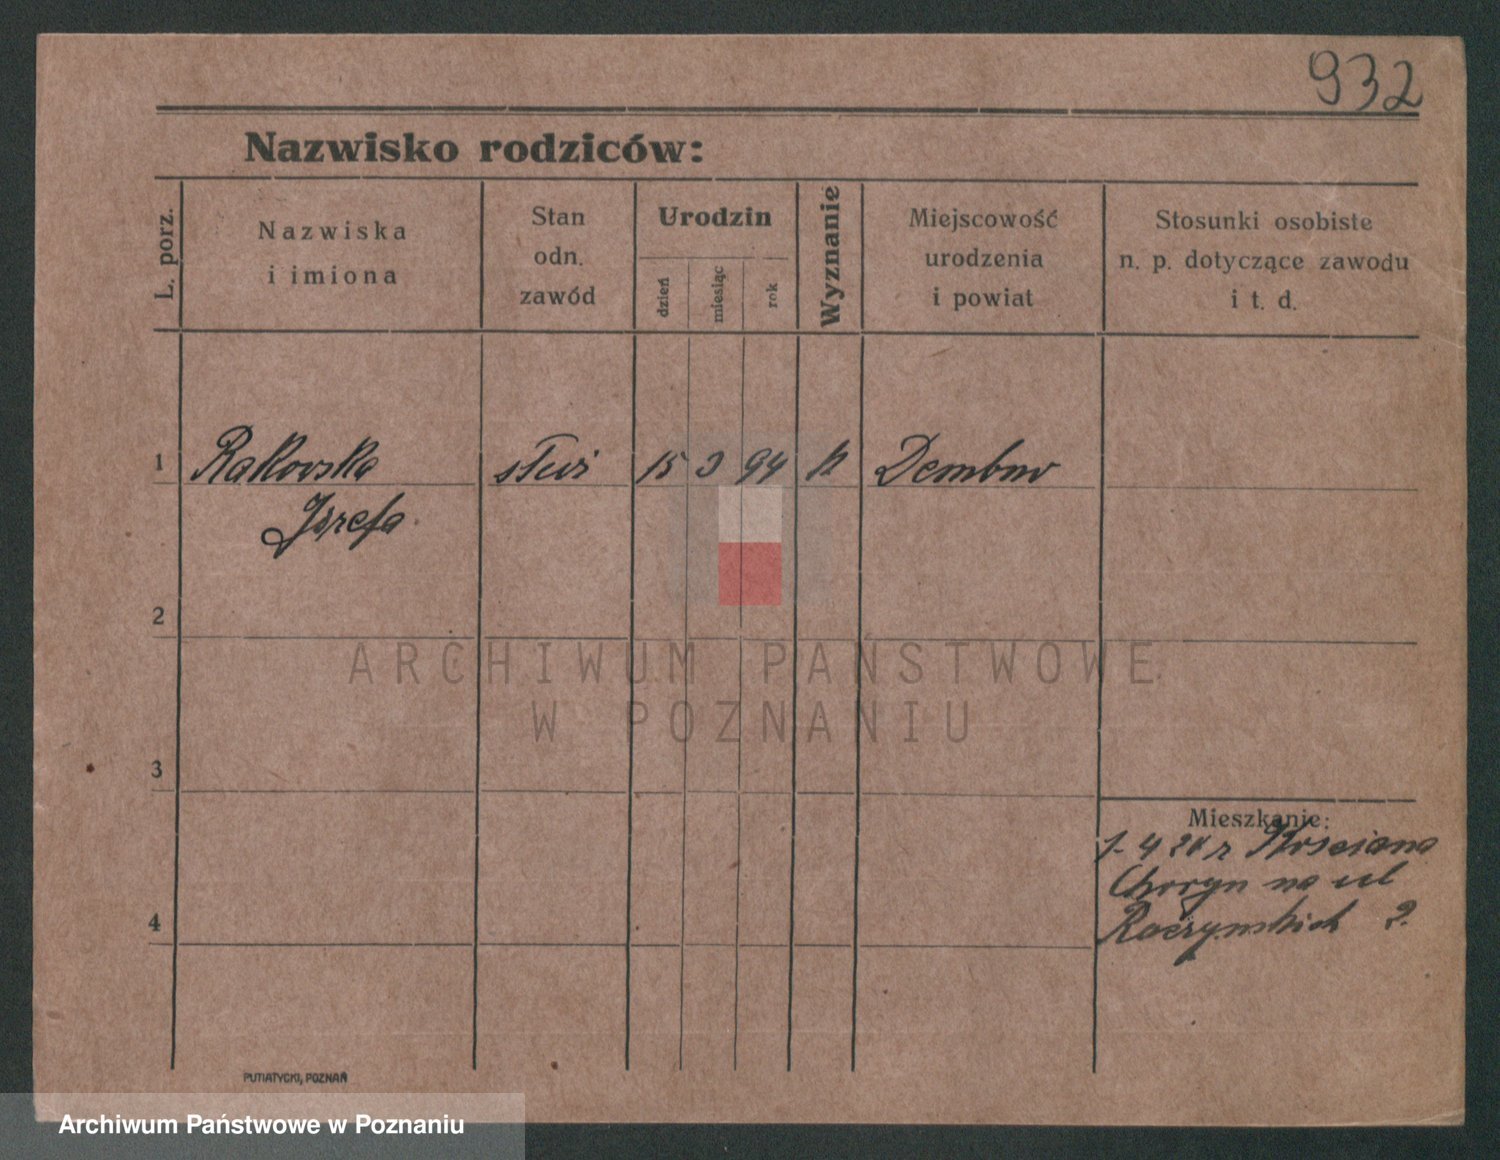 932
Nazwisko rodziców:
L. porz.
Nazwiska
i imiona
Stan
odn.
zawód
Urodzin
dzień
miesiąc
rok
Wyznanie
Miejscowość
urodzenia
i powiat
Stosunki osobiste
n. p. dotyczące zawodu
i t. d.
1 Rakovska służ 15 3 94 k Dembno
Józefa
2
ARCHIWUM PAŃSTWOWE
W POZNANIU
3
Mieszkanie:
1. 4 24 z Kosciana
Choryn na ul
4
Raczynskich 2.
PUTIATYCKI, POZNAŃ
Archiwum Państwowe w Poznaniu